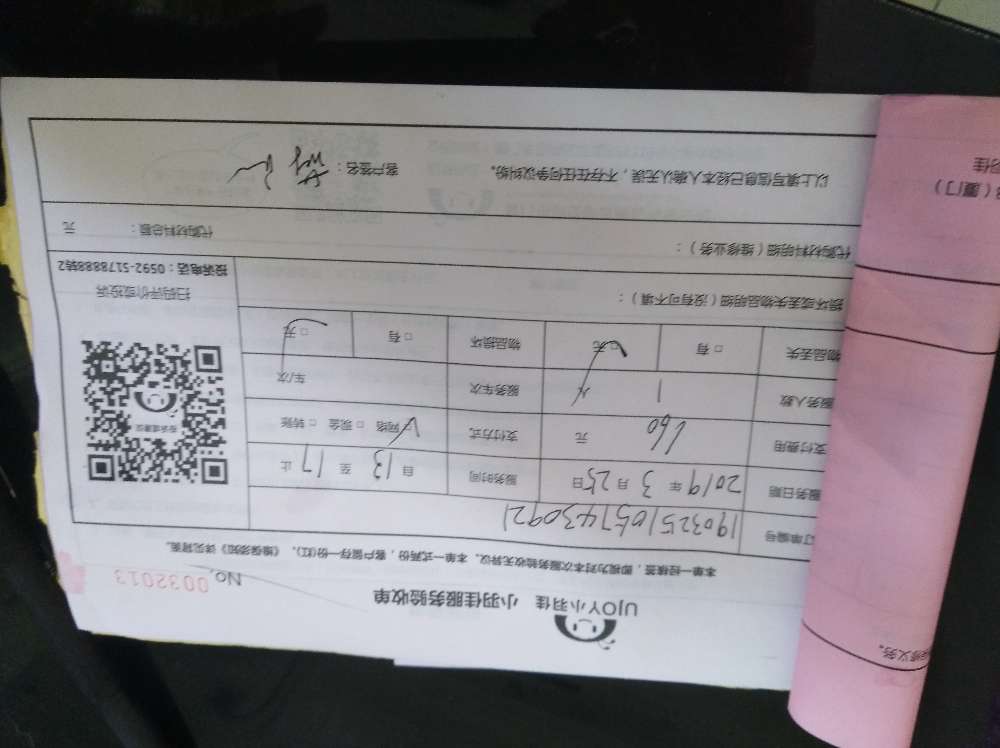 UJOY小羽佳 小羽佳服务验收单
No. 0032013
本单一经填签，即视为对本次服务验收无异议。本单一式两份，客户留存一份(红)，《维保须知》详见背面。
订单编号 1903251057430921
服务日期 2019年3月25日 服务时间 自13至17止
支付费用 160元 支付方式 网络 □现金 □转账
服务人数 1人 服务车次 车/次
物品丢失 □有 □无 物品损坏 □有 □无
损坏或丢失物品明细（没有可不填）：
扫码评价或投诉
投诉电话：0592-5178888转2
代购材料明细（维修业务）： 代购材料总额： 元
以上填写信息已经本人确认无误，不存在任何争议纠纷。 客户签名：
（厦门）
修义务。